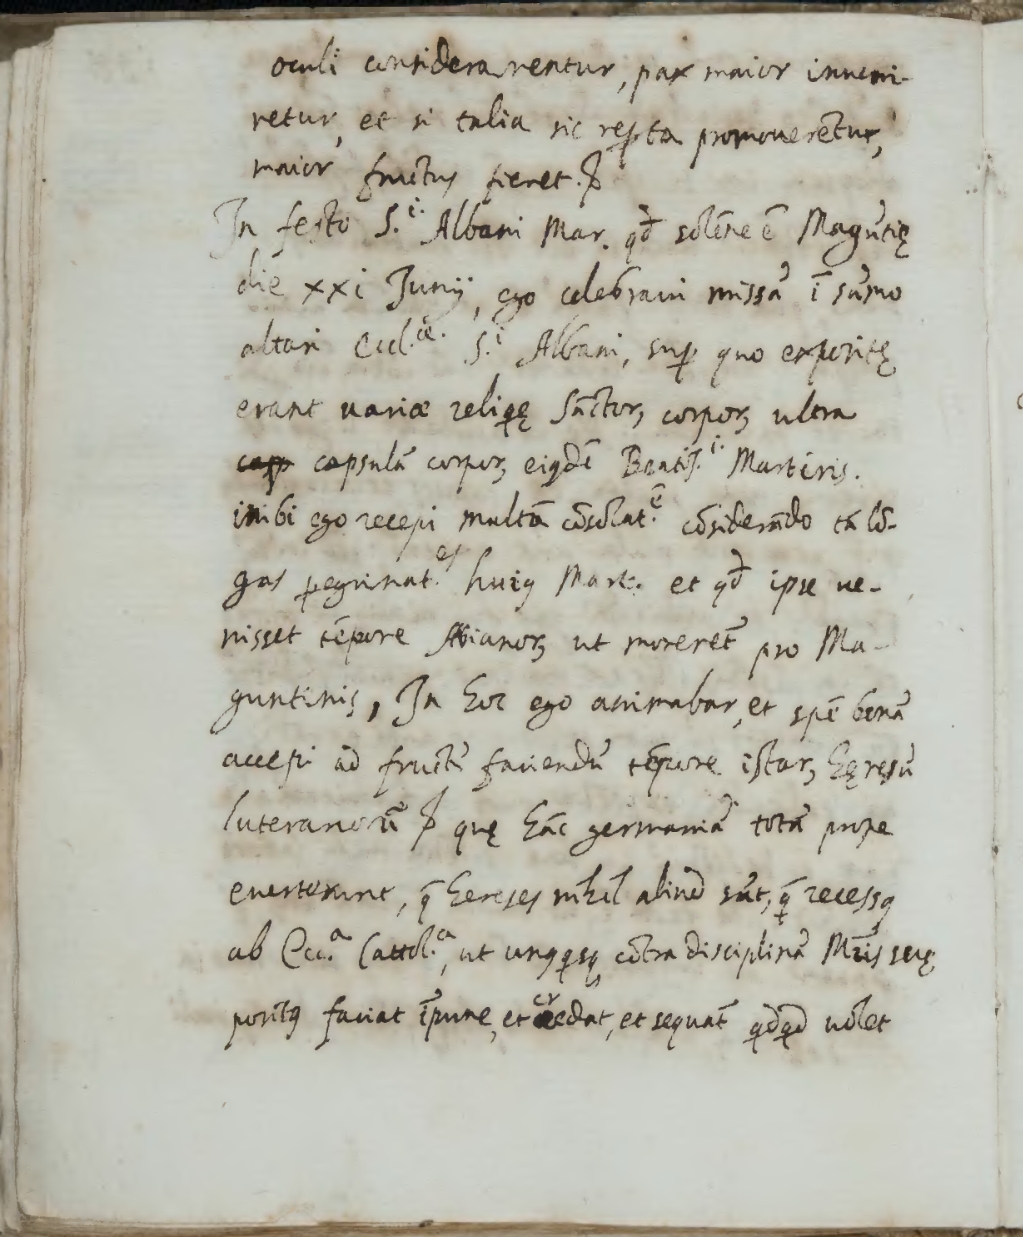 oculi considerarentur, pax maior inueni-
retur, et si talia sic repta promouerẽtur,
maior fructus fieret.
In festo S.i Albani Mar. qđ solẽne ẽ Magũtię
die xxi Junij, ego celebraui missã ĩ sũmo
altari Eccl.ie S.i Albani, sup quo expositę
erant uariæ reliqę Sãctorꝝ corporꝝ ultra
capsulã corporꝫ eiꝰdẽ Beatiss.i Martiris.
inibi ego recepi multã cõsolat.ẽ cõsiderãdo tã lõ-
gas pegrinat.es huiꝰ Mart. et qđ ipse ue-
nisset tẽpore Arianorꝝ ut moreret̃ pro Ma-
guntinis, In hoc ego animabar, et spẽ bonã
accepi ad fructũ faciendũ tẽpore istarꝝ hęresũ
luteranorũ quę hãc germaniã totã prope
euerterunt, q̃ hereses nihil aliud sũt, q̃ recessꝰ
ab Ecc.a Cattol.a, ut unꝰqsqꝫ cõtra disciplinã Mr̃is seuę
positꝰ faciat ĩpune, et credat, et sequat̃ qdqd uolet